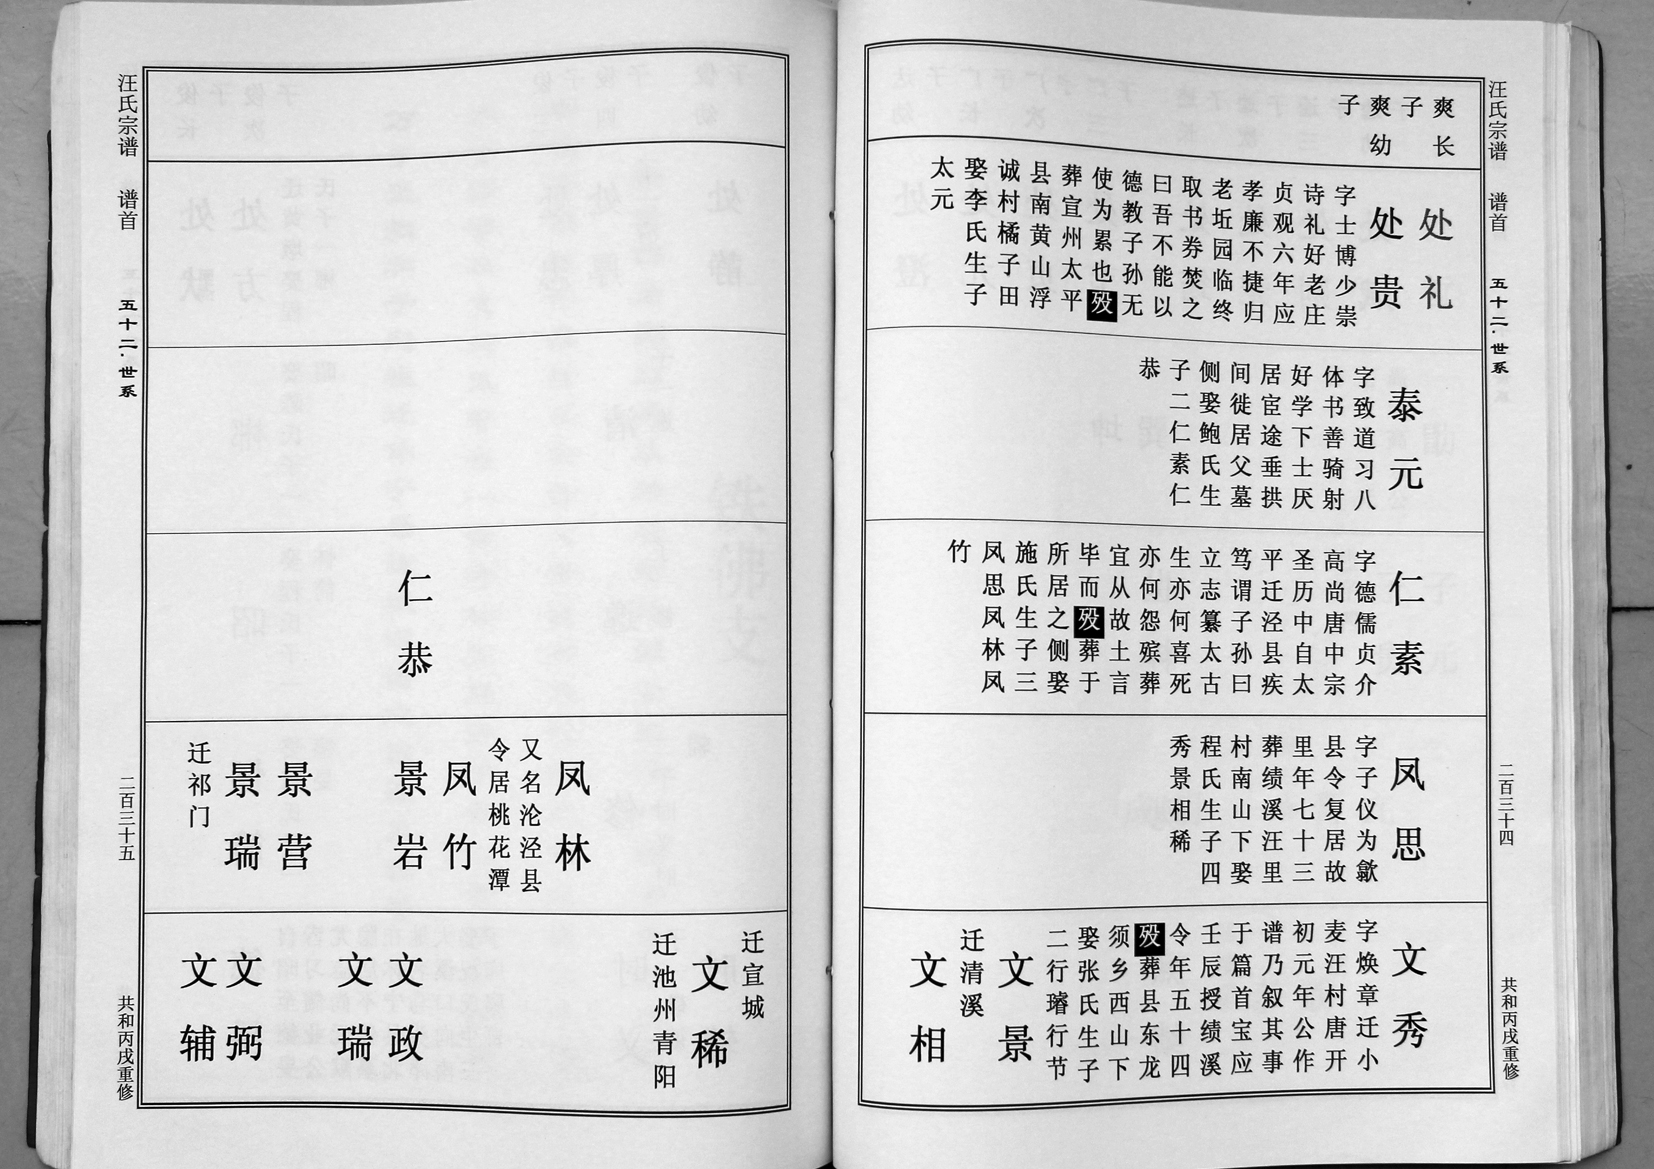 汪氏宗谱
谱首
五十二·世系
二百三十四
共和丙戌重修
爽长
子
爽幼
子
处礼
处贵
字士博少崇
诗礼好老庄
贞观六年应
孝廉不捷归
老坵园临终
取书券焚之
曰吾不能以
德教子孙无
使为累也殁
葬宣州太平
县南黄山浮
诚村橘子田
娶李氏生子
太元
泰元
字致道习八
体书善骑射
好学下士厌
居宦途垂拱
间徙居父墓
侧娶鲍氏生
子二仁素仁
恭
仁素
字德儒贞介
高尚唐中宗
圣历中自太
平迁泾县疾
笃谓子孙曰
立志纂太古
生亦何喜死
亦何怨殡葬
宜从故土言
毕而殁葬于
所居之侧娶
施氏生子三
凤思凤林凤
竹
凤思
字子仪为歙
县令复居故
里年七十三
葬绩溪汪里
村南山下娶
程氏生子四
秀景相稀
文秀
字焕章迁小
麦汪村唐开
初元年公作
谱乃叙其事
于篇首宝应
壬辰授绩溪
令年五十四
殁葬县东龙
须乡西山下
娶张氏生子
二行璿行节
文景
迁清溪
文相
仁恭
凤林
又名沦泾县
令居桃花潭
凤竹
景岩
景营
景瑞
迁祁门
迁宣城
文稀
迁池州青阳
文政
文瑞
文弼
文辅
汪氏宗谱
谱首
五十二·世系
二百三十五
共和丙戌重修